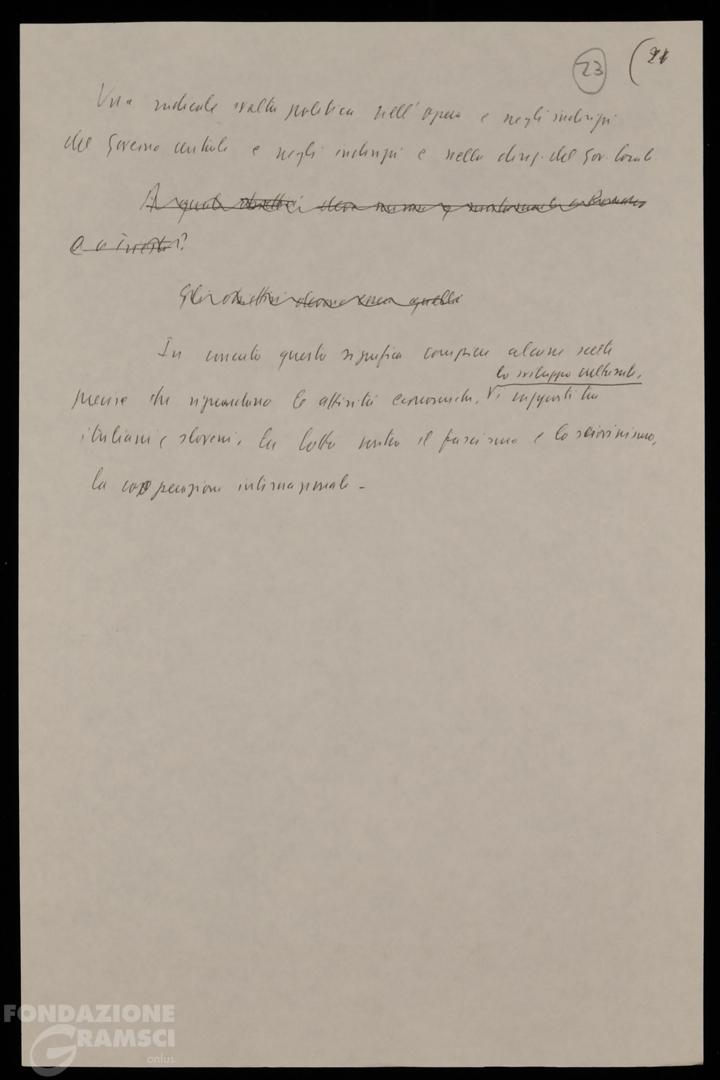 23 (21
Una radicale svolta politica nell'opera e negli indirizzi
del Governo centrale e negli indirizzi e nella direz. del Gov. local.
A quali obiettivi deve
Gli obiettivi devono essere quelli
In concreto questo significa compiere alcune scelte
lo sviluppo culturale,
precise che riguardano le attività economiche, i rapporti tra
italiani e sloveni, la lotta contro il fascismo e lo sciovinismo,
la cooperazione internazionale -
FONDAZIONE
GRAMSCI
onlus